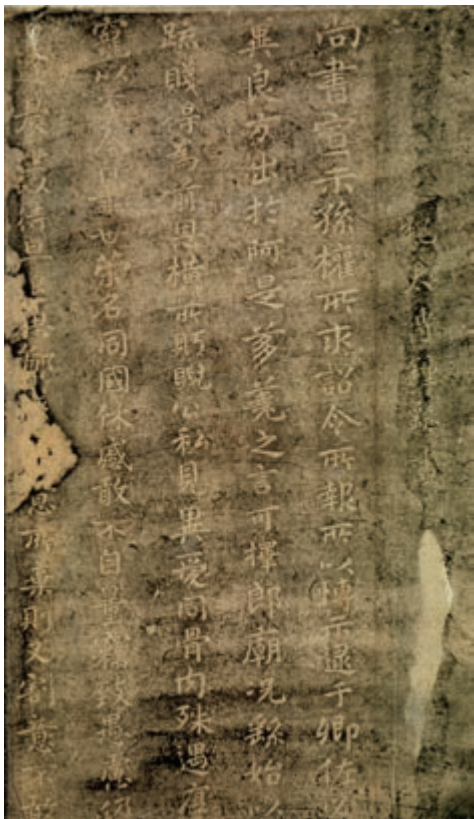 太傅鍾繇
尚書宣示孫權所求詔令所報所以博示逮于卿佐必
冀良方出於阿是芻蕘之言可擇郎廟況繇始以
疏賤得為前恩橫所眄睨公私見異愛同骨肉殊遇厚
寵以至今日再世榮名同國休慼敢不自量竊致愚慮仍
晨坐以待旦退思鄙意所棄則又割意不敢